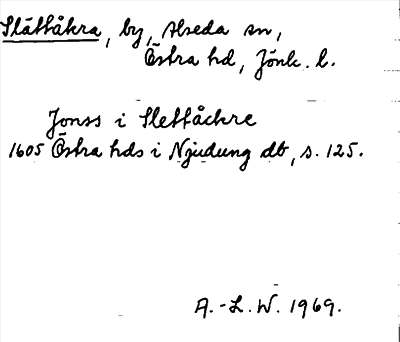 Slättåkra, by, Alseda sn,
Östra hd, Jönk. l.
Jonss i Slettåckre
1605 Östra hds i Njudung db, s. 125.
A.-L.W. 1969.